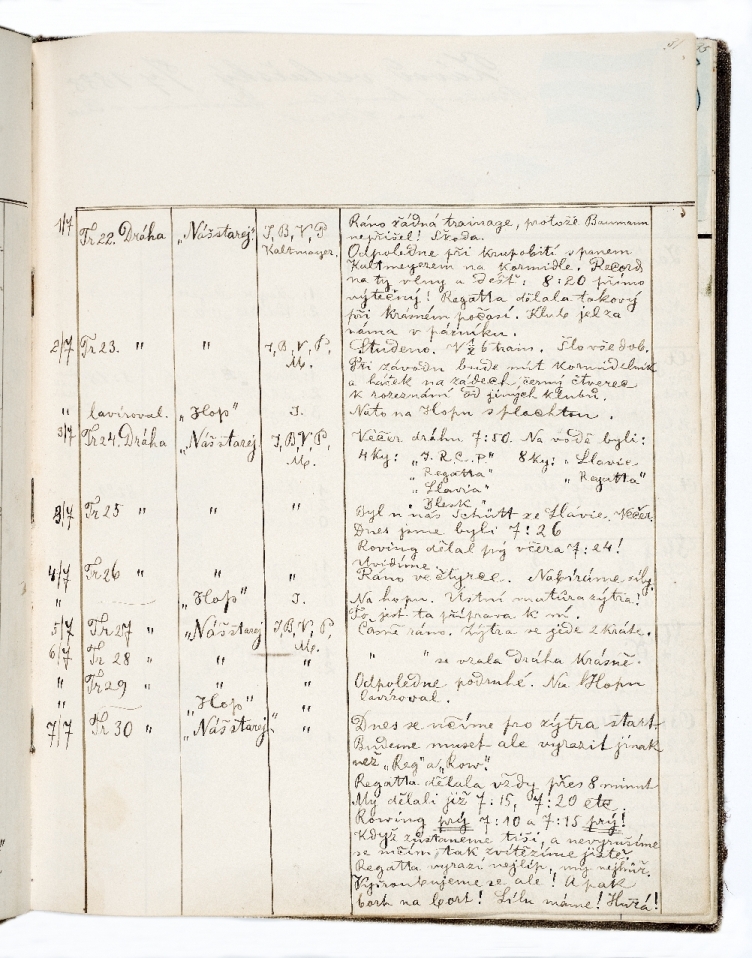 1/7 Tr 22. Dráha „Náš starej" J, B, V, P Kaltmayer. Ráno řádná trainage, protože Baumann
nepřišel! Škoda.
Odpoledne při krupobití s panem
Kaltmeyerem na kormidle. Record
na ty vlny a déšť: 8:20 přímo
výtečný! Regatta dělala takový
při krásném počasí. Klub jel za
náma v párníku.
2/7 Tr 23. " " J, B, V, P, M. Studeno. V 1/2 6 train. Šlo vše dob.
Při závodu bude mít kormidelník
a háček na zádech černý čtverec
k rozeznání od jiných klubů.
" lavíroval. „Hop" J. Nato na Hopu s plachtou.
3/7 Tr 24. Dráha „Náš starej J, B, V, P, M. Večer dráhu 7:50. Na vodě byli:
4ky: „J. R. C. P." 8ky: „Slavie
„Regatta" „Regatta"
„Slavia"
„Blesk"
3/7 Tr 25 " " " Byl u nás Schütt ze Slávie. Večer.
Dnes jsme byli 7:26
Roving dělal prý včera 7:24!
Uvidíme.
4/7 Tr 26 " " " Ráno ve čtyrce. Nabíráme síly.
" „Hop" J. Na hopu. Ústní matura zýtra!
To jest ta příprava k ní.
5/7 Tr 27 " „Náš starej J, B, V, P, M. Časně ráno. Zýtra se jede 2 kráte.
6/7 Tr 28 " " " " " se vzala dráha krásně.
" Tr 29 " " " Odpoledne podruhé. Na Hopu
" „Hop" " lavíroval.
7/7 Tr 30 " „Náš starej" " Dnes se učíme pro zýtra start.
Budeme muset ale vyrazit jinak
než „Reg" a „Row".
Regatta dělala vždy přes 8 minut
My dělali již 7:15, 7:20 etc
Rowing prý 7:10 a 7:15 prý!
Když zůstaneme tiší, a nevyrušíme
se ničím, tak zvítězíme jistě.
Regatta vyrazí nejlíp, my nejhůř.
Vyšroubujeme se ale! A pak
bort na bort! Sílu máme! Hurá!